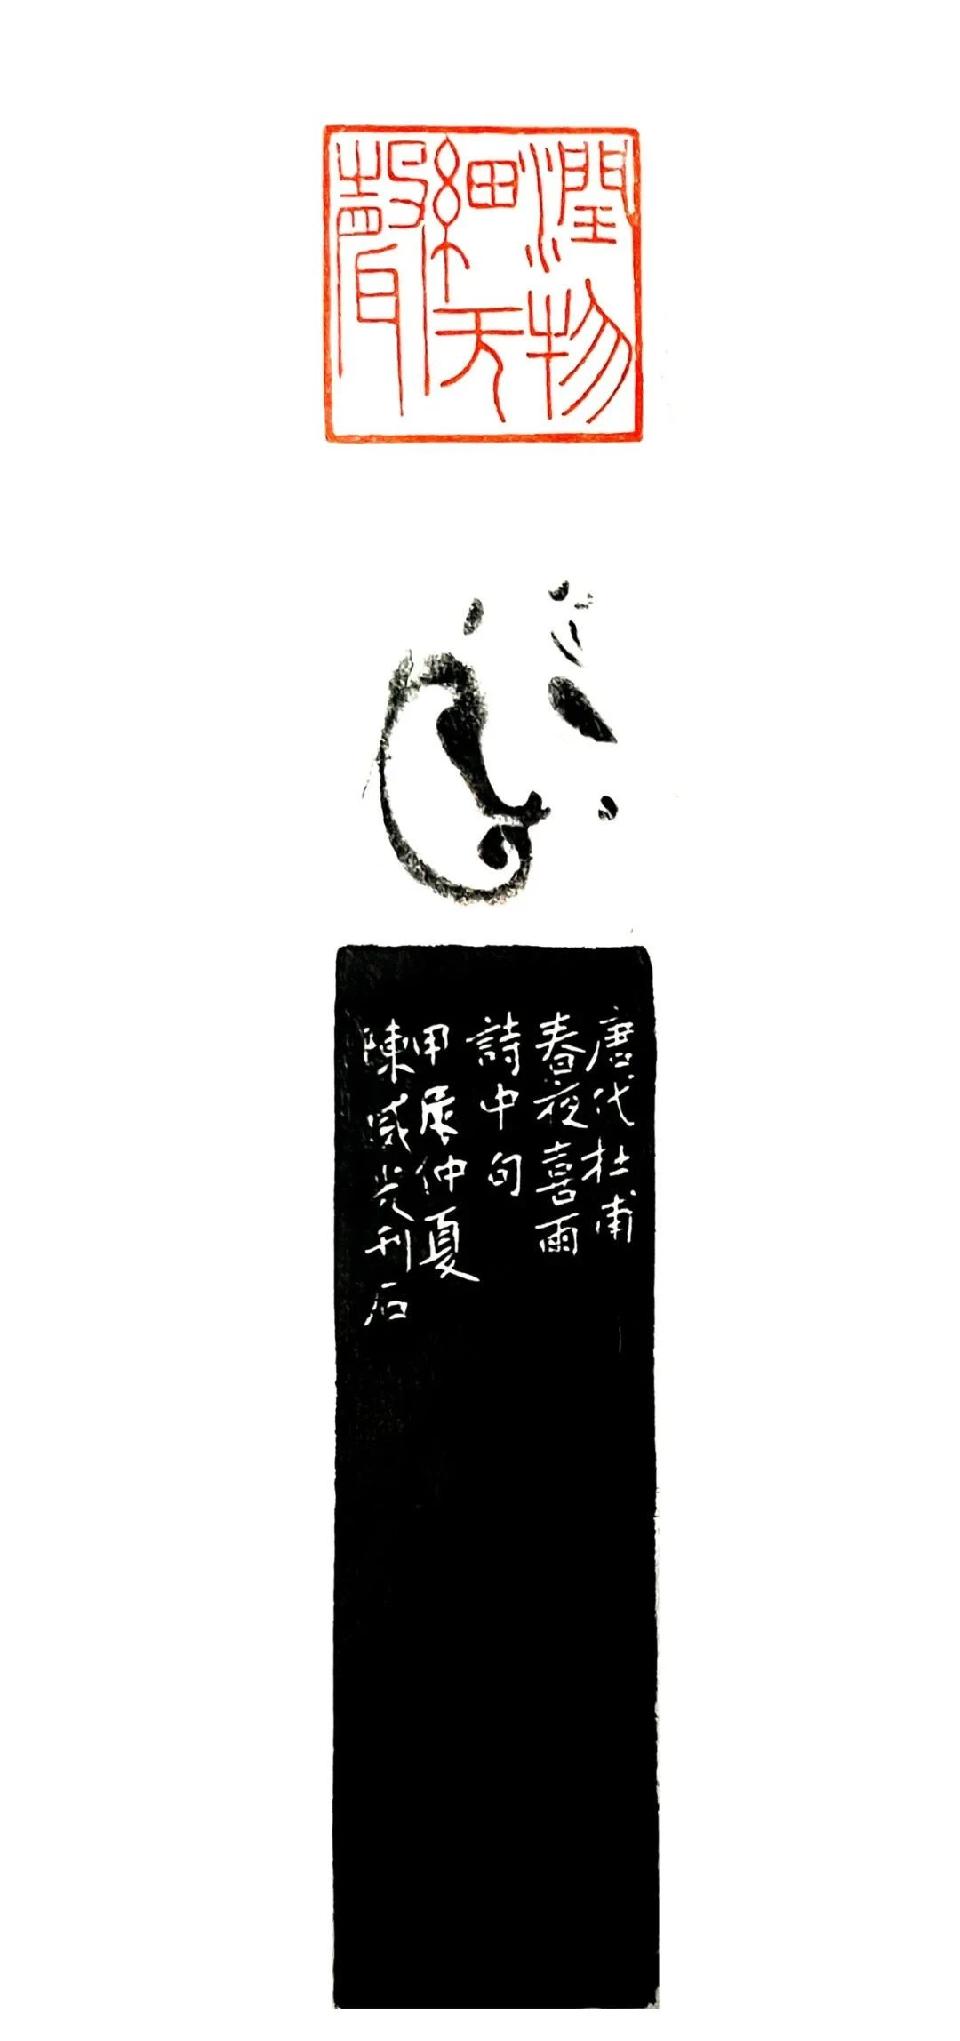 潤物
細无
聲
唐代杜甫
春夜喜雨
詩中句
甲辰仲夏
陳威光刊石